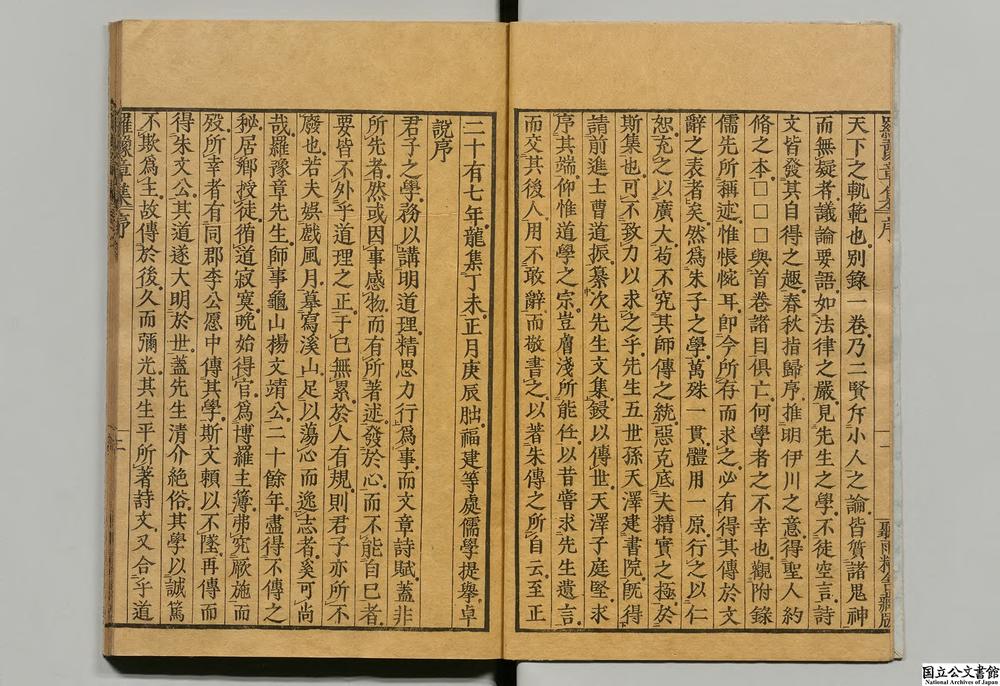 羅豫章集序
天下之軌範也別錄一卷乃二賢斥小人之論皆質諸鬼神
而無疑者議論要語如法律之嚴見先生之學不徒空言詩
文皆發其自得之趣春秋指歸序推明伊川之意得聖人約
脩之本□□□與首卷諸目俱亡何學者之不幸也觀附錄
儒先所稱述惟悵惋耳卽今所存而求之必有得其傳於文
辭之表者矣然爲朱子之學萬殊一貫體用一原行之以仁
恕充之以廣大苟不究其師傳之統惡克底夫精實之極於
斯集也可不致力以求之乎先生五世孫天澤建書院旣得
請前進士曹道振纂次先生文集鋟以傳世天澤子庭堅求
序其端仰惟道學之宗豈膚淺所能任以昔嘗求先生遺言
而交其後人用不敢辭而敬書之以著朱傳之所自云至正
二十有七年龍集丁未正月庚辰朏福建等處儒學提擧卓
說序
君子之學務以講明道理精思力行爲事而文章詩賦蓋非
所先者然或因事感物而有所著述發於心而不能自已者
要皆不外乎道理之正于已無累於人有規則君子亦所不
廢也若夫娯戲風月摹寫溪山足以蕩心而逸志者奚可尚
哉羅豫章先生師事龜山楊文靖公二十餘年盡得不傳之
秘居鄉授徒循道寂寞晚始得官爲博羅主簿弗究厥施而
歿所幸者有同郡李公愿中傳其學斯文頼以不墜再傳而
得朱文公其道遂大明於世蓋先生清介絶俗其學以誠篤
不欺爲主故傳於後久而彌光其生平所著詩文又合乎道
羅豫章集序
国立公文書館
National Archives of Japan